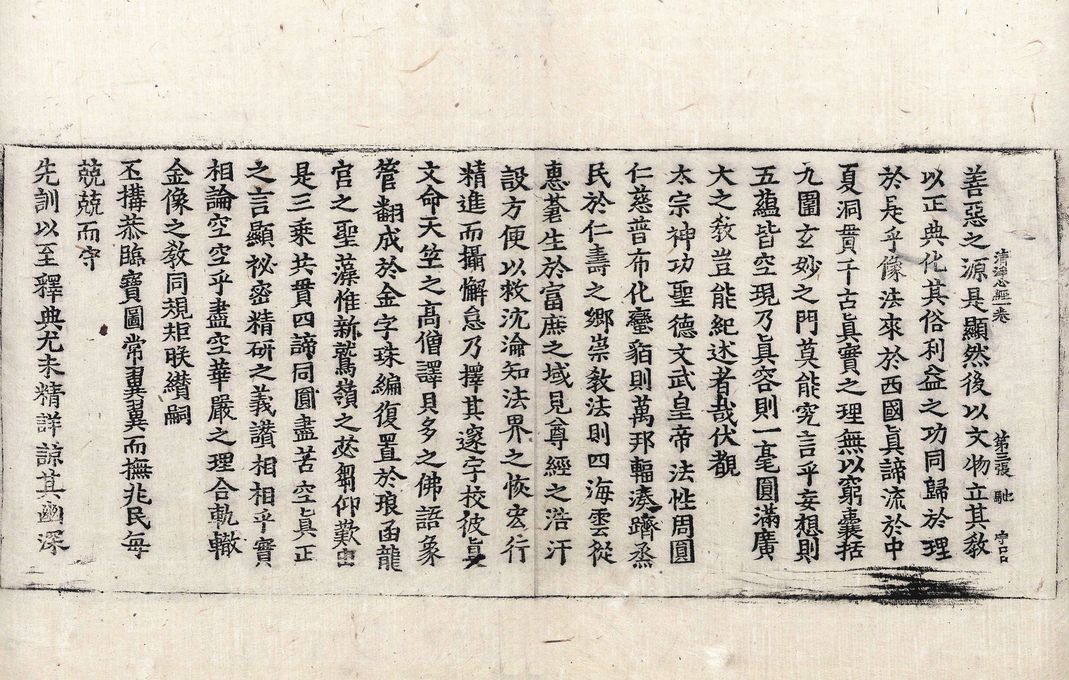 善惡之源是顯然後以文物立其敎
清淨心經一卷 第三張 馳
以正典化其俗利益之功同歸於理
於是乎像法來於西國眞諦流於中
夏洞貫千古眞實之理無以窮囊括
九圍玄妙之門莫能究言乎妄想則
五蘊皆空現乃眞容則一毫圓滿廣
大之敎豈能紀述者哉伏覩
太宗神功聖德文武皇帝法性周圓
仁慈普布化蠻貊則萬邦輻湊躋烝
民於仁壽之鄉崇敎法則四海雲從
惠蒼生於富庶之域見尊經之浩汗
設方便以救沈淪知法界之恢宏行
精進而攝懈怠乃擇其邃宇校彼眞
文命天竺之高僧譯貝多之佛語象
管翻成於金字珠編復置於琅函龍
宮之聖藻惟新鷲嶺之苾蒭仰歎由
是三乘共貫四諦同圓盡苦空眞正
之言顯祕密精研之義讚相相乎實
相論空空乎盡空華嚴之理合軌轍
金像之敎同規矩朕纘嗣
丕搆恭臨寶圖常翼翼而撫兆民每
兢兢而守
先訓以至釋典尤未精詳諒其幽深